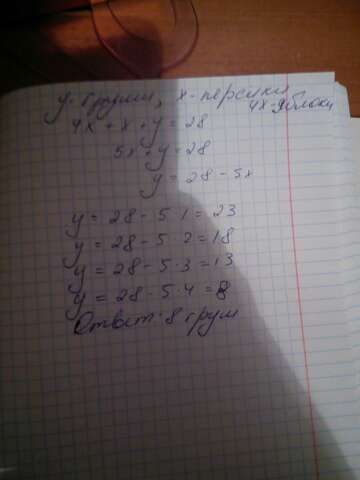 y-груши, x-персики
4x-яблоки
4x + x + y = 28
5x + y = 28
y = 28 - 5x
y = 28 - 5·1 = 23
y = 28 - 5·2 = 18
y = 28 - 5·3 = 13
y = 28 - 5·4 = 8
Ответ: 8 груш